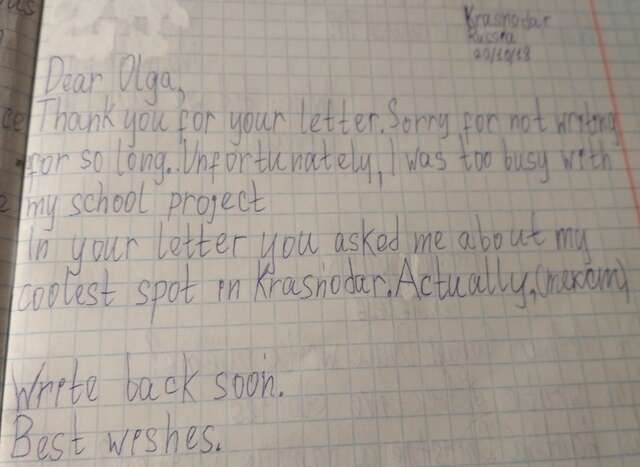 Krasnodar
Russia
20/10/18
Dear Olga,
Thank you for your letter. Sorry for not writing
for so long. Unfortunately, I was too busy with
my school project
In your letter you asked me about my
coolest spot in Krasnodar. Actually, (текст)
Write back soon.
Best wishes.